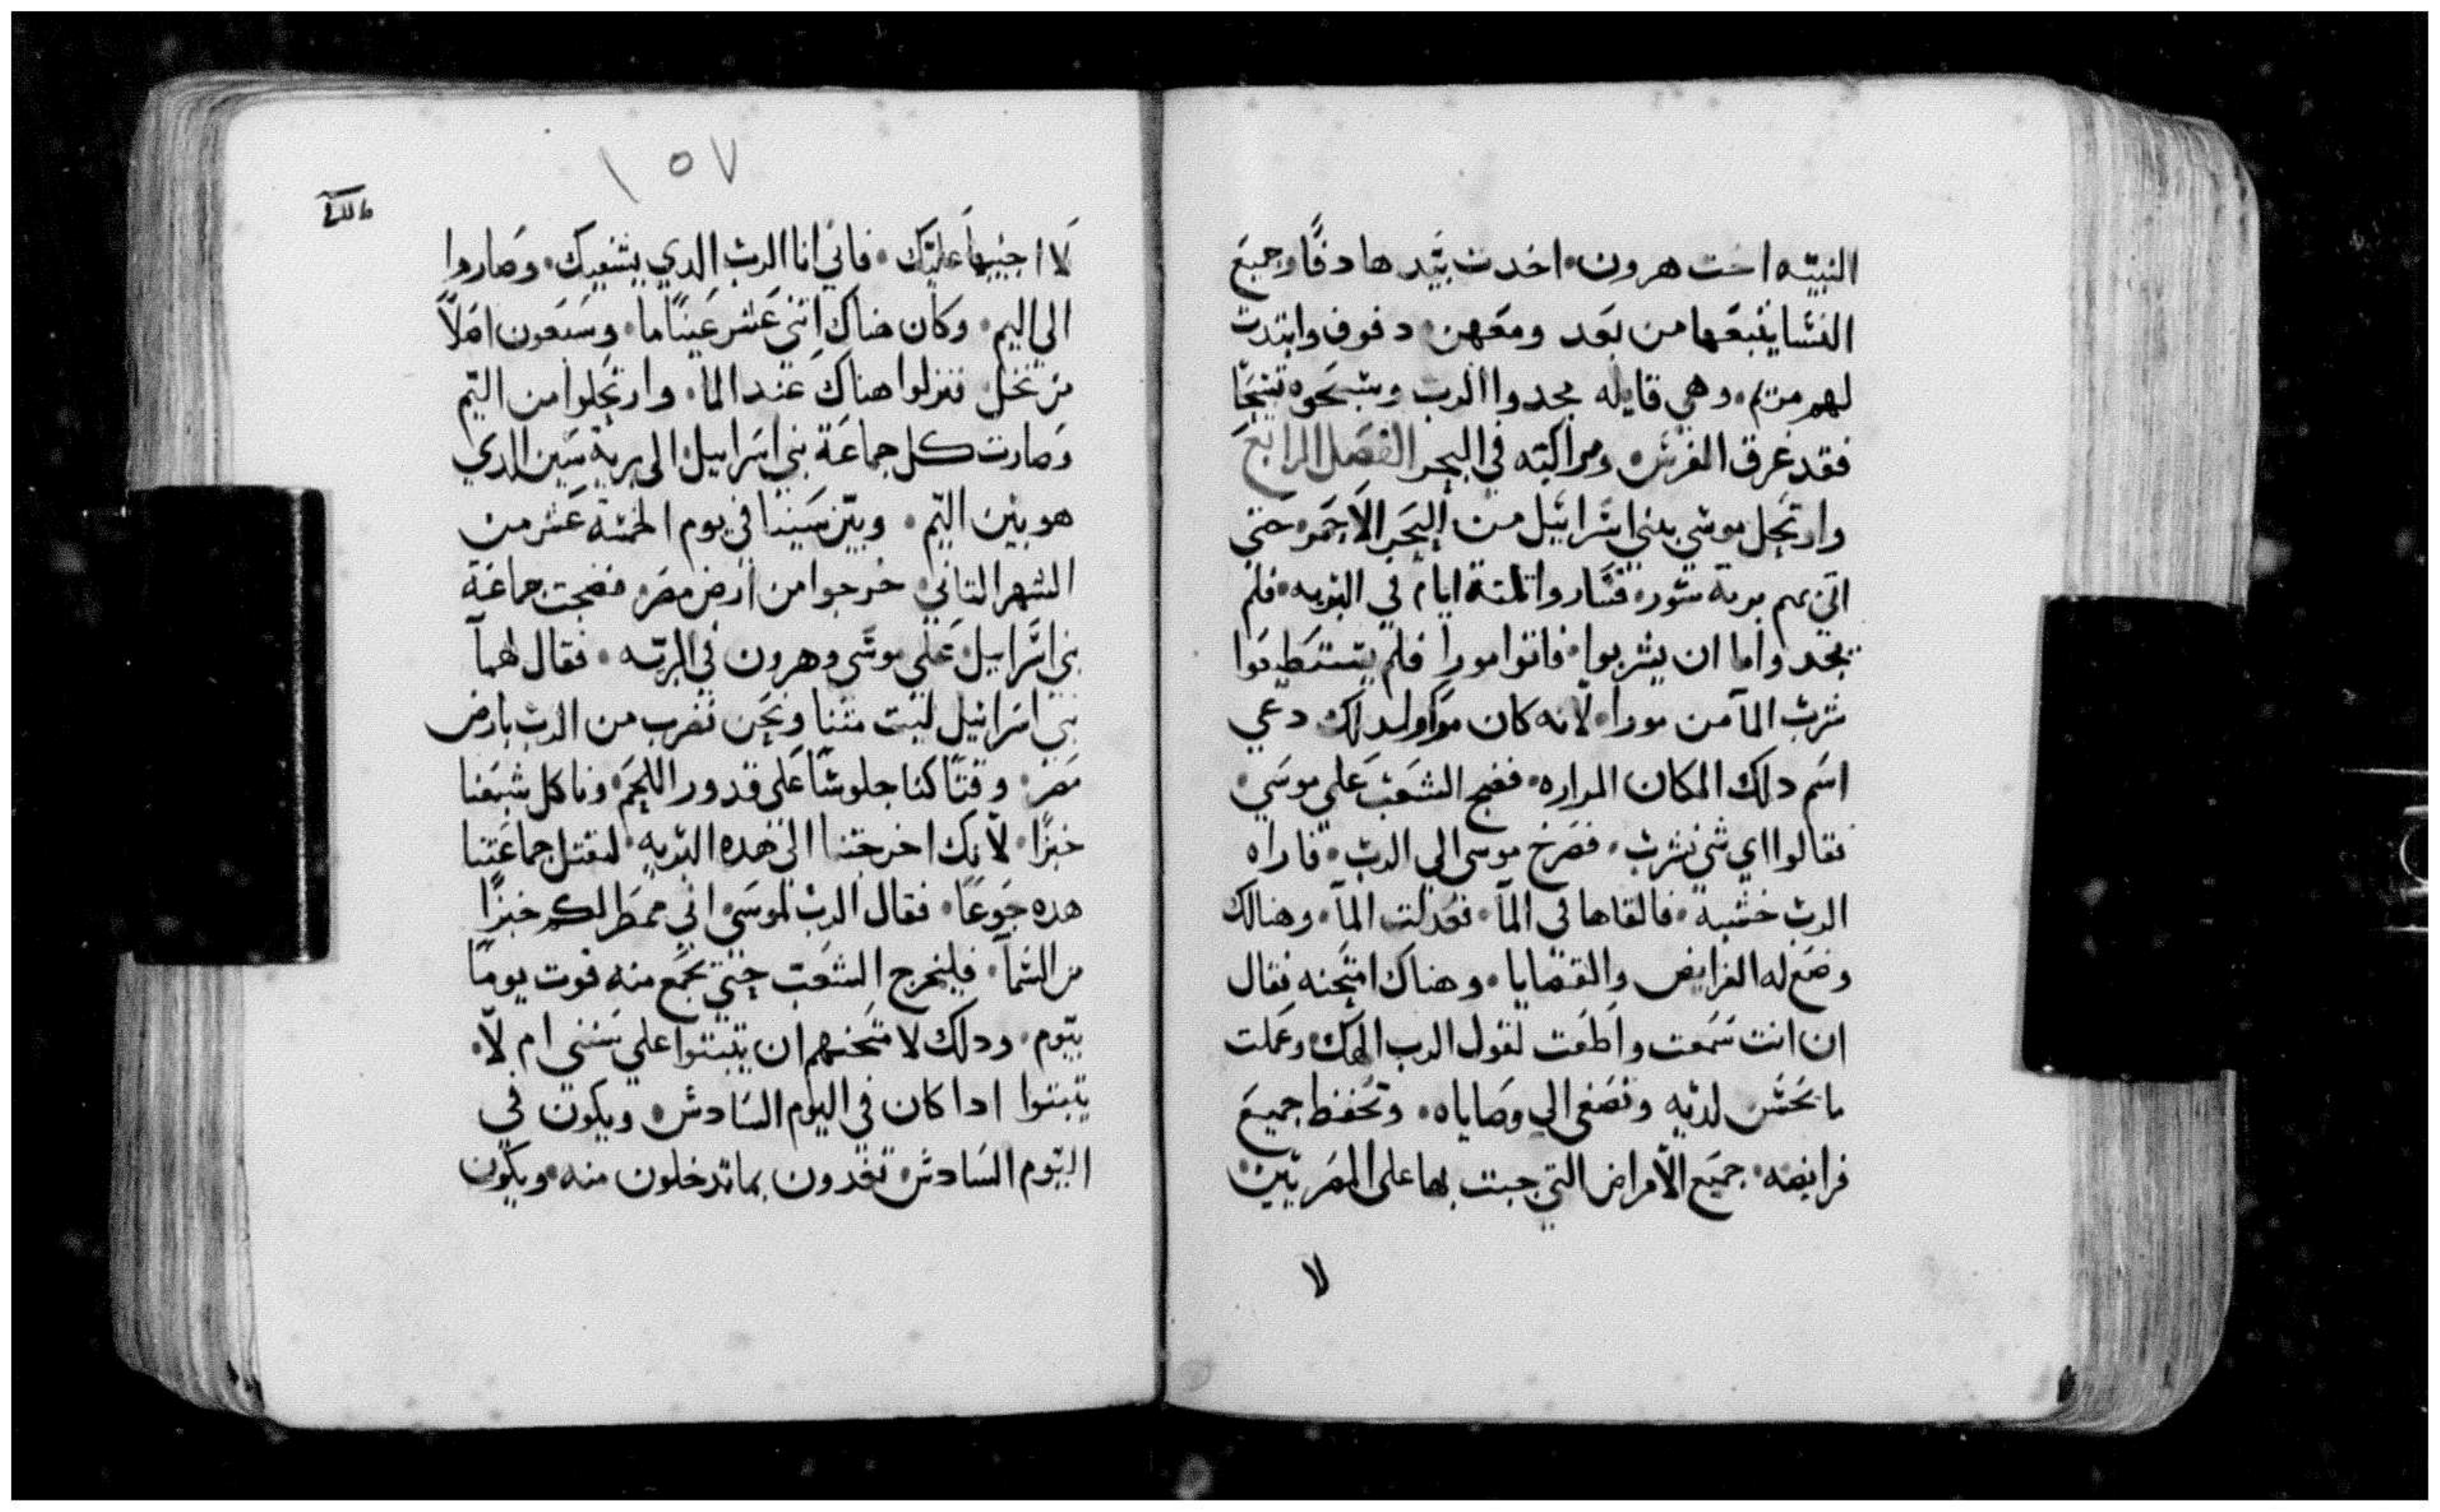 النبيه اخت هرون اخدت بيدها دفًا وجميع
النسا يتبعها من بعد ومعهن دفوف وابتدت
لهم مريم وهي قايله مجدوا الرب وسبحوه تسبحًا
فقد غرق الفرس ومراكبه في البحر الفصل الرابع
وارتحل موسي ببني اسراييل من البحر الاحمر حتي
اتي بهم برية سور فساروا تلتة ايام في البريه فلم
يجدوا ما ان يشربوا فاتوا مورا فلم يستطيعوا
شرب المآ من مورا لانه كان مرًا ولدلك دعي
اسم دلك المكان المراره فضج الشعب علي موسي
فقالوا اي شي نشرب فصرخ موسي الي الرب فاراه
الرب خشبة فالقاها في المآ فعدلت المآ وهنالك
وضع له الفرايض والقضايا وهناك امتحنه فقال
ان انت سمعت واطعت لقول الرب الهك وعملت
ما يحسن لديه وتصغي الي وصاياه وتحفظ جميع
فرايضه جميع الامراض التي جبت بها علي المصريين
لا
١٥٧
لا اجيبها عليك فاني انا الرب الدي يشفيك وصاروا
الي اليم وكان هناك اتني عشر عينًا ما وسبعون اصلاً
من نخل فنزلوا هناك عند المآ وارتحلوا من اليم
وصارت كل جماعة بني اسراييل الي برية سين الدي
هو بين اليم وبين سينا في يوم الخمسة عشر من
الشهر التاني خرجوا من ارض مصر فضجت جماعة
بني اسراييل علي موسي وهرون في البريه فقال لهمآ
بني اسراييل ليت متنا ونحن نضرب من الرب بارض
مصر وقتًا كنا جلوسًا علي قدور اللحم وناكل شبعنا
خبزًا لانك اخرجتنا الي هده البريه لتقتل جماعتنا
هده جوعًا فقال الرب لموسي اني ممطر لكم خبزًا
من السمآ فليخرج الشعب حتي يجمع منه قوت يومًا
بيوم ودلك لامتحنهم ان يتبتوا علي سنني ام لا
يتبتوا ادا كان في اليوم السادس ويكون في
اليوم السادس تعدون بما تدخلون منه ويكون